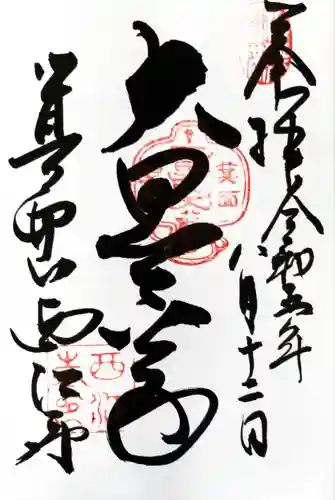 奉拝 令和五年
八月十二日
大黒尊
箕面
箕面山 西江寺